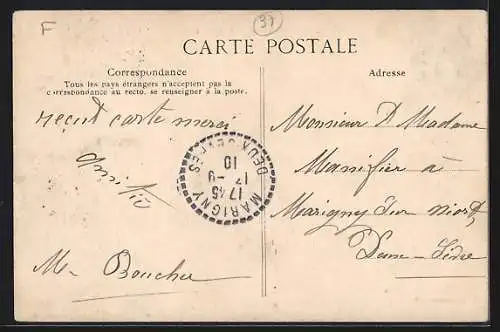 F
37
CARTE POSTALE
Correspondance
Tous les pays étrangers n'acceptent pas la
correspondance au recto, se renseigner à la poste.
reçut carte merci
Amitié
M. Boucher
MARIGNY
17 45
17 - 9
10
DEUX SEVRES
Adresse
Monsieur & Madame
à
Marigny sur Niort
Deux-Sèvre